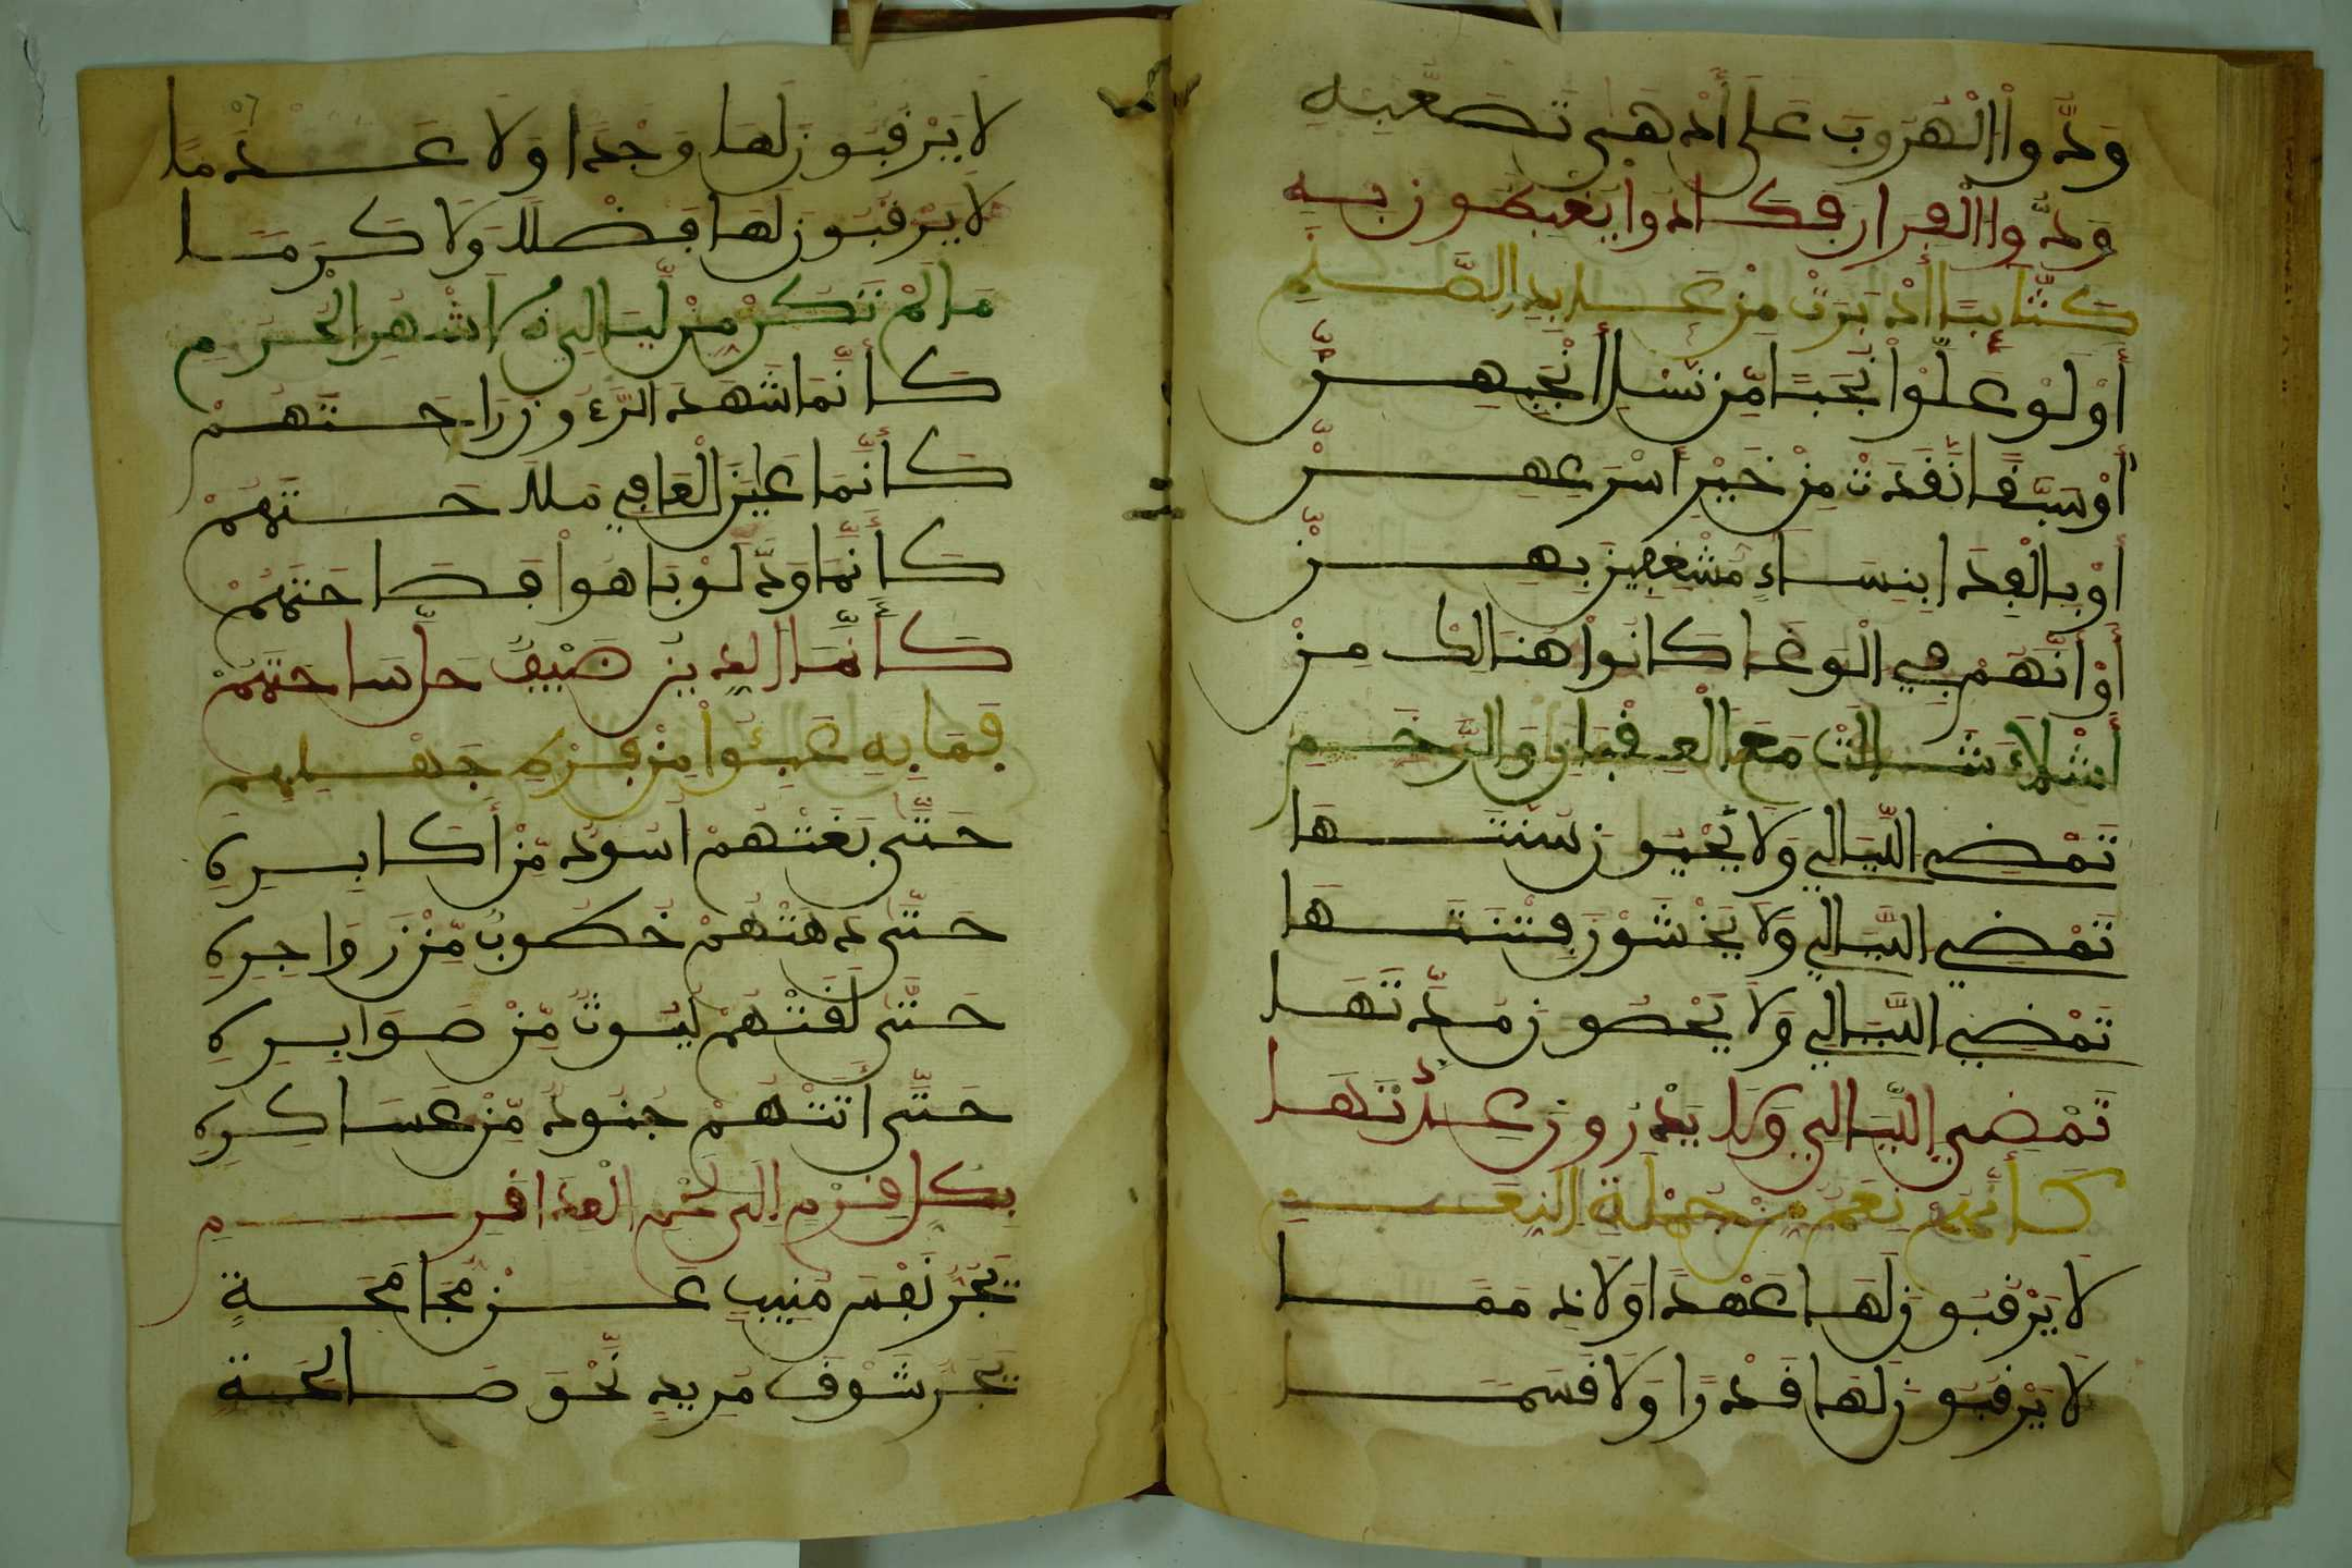 وَدُّوا الْهُرُوبَ عَلَى أَدْهَى تَصَعُّبِهِ
وَدُّوا الْفِرَارَ فَكَادُوا يَغْبِطُونَ بِهِ
أَوْ لَوْ عَلَوْا نُجُبًا مِّن نَّسْلِ أَنْجُبِهِنّ
أَوْ سُبَّقًا نَفَدَتْ مِنْ خَيْرِ أَسْرُعِهِنّ
أَوْ بِالْفِدَا بِنِسَاءٍ مُشْغَفِينَ بِهِنّ
أَوْ أَنَّهُمْ فِي الْوَغَا كَانُوا هُنَالِكَ مِنْ
أَشْلَاءَ شَالَتْ مَعَ الْعِقْبَانِ وَالرَّخَمِ
تَمْضِي اللَّيَالِي وَلَا يُحْيُونَ سُنَّتَهَا
تَمْضِي اللَّيَالِي وَلَا يَخْشَوْنَ فِتْنَتَهَا
تَمْضِي اللَّيَالِي وَلَا يُحْصُونَ مُدَّتَهَا
تَمْضِي اللَّيَالِي وَلَا يَدْرُونَ عِدَّتَهَا
كَأَنَّهُمْ نَعَمٌ مِنْ جُمْلَةِ النَّعَمِ
لَا يَرْقُبُونَ لَهَا عَهْدًا وَلَا ذِمَمَا
لَا يَرْقُبُونَ لَهَا قَدْرًا وَلَا قَسَمَا
لَا يَرْقُبُونَ لَهَا وَجْدًا وَلَا عَدَمَا
لَا يَرْقُبُونَ لَهَا فَضْلًا وَلَا كَرَمَا
مَا لَمْ تَكُنْ مِنْ لَيَالِي الْأَشْهُرِ الْحُرُمِ
كَأَنَّمَا شَهِدَ الرَّءُونَ رَاحَتَهُمْ
كَأَنَّمَا عَيْنُ الْعَافِي مَلَاحَتَهُمْ
كَأَنَّمَا وَدَّ لَوْ بَاهَوْا فَصَاحَتَهُمْ
كَأَنَّمَا الدِّينُ ضَيْفٌ حَلَّ سَاحَتَهُمْ
فَمَا بِهِ عَبِئُوا مِنْ فَرْطِ جَهْلِهِمِ
حَتَّى بَغَتْهُمْ أُسُودٌ مِّنْ أَكَابِرِهِ
حَتَّى دَهَتْهُمْ خُطُوبٌ مِّنْ زَوَاجِرِهِ
حَتَّى لَقَتْهُمْ لُيُوثٌ مِّنْ صَوَابِرِهِ
حَتَّى أَتَتْهُمْ جُنُودٌ مِّنْ عَسَاكِرِهِ
بِكُلِّ قَرْمٍ إِلَى لَحْمِ الْعِدَا قَرِمِ
يَجُرُّ نَفْسَ مُنِيبٍ عَنْ مُجَامَحَةٍ
يَجُرُّ شَوْقَ مُرِيدٍ نَّحْوَ صَالِحَةٍ